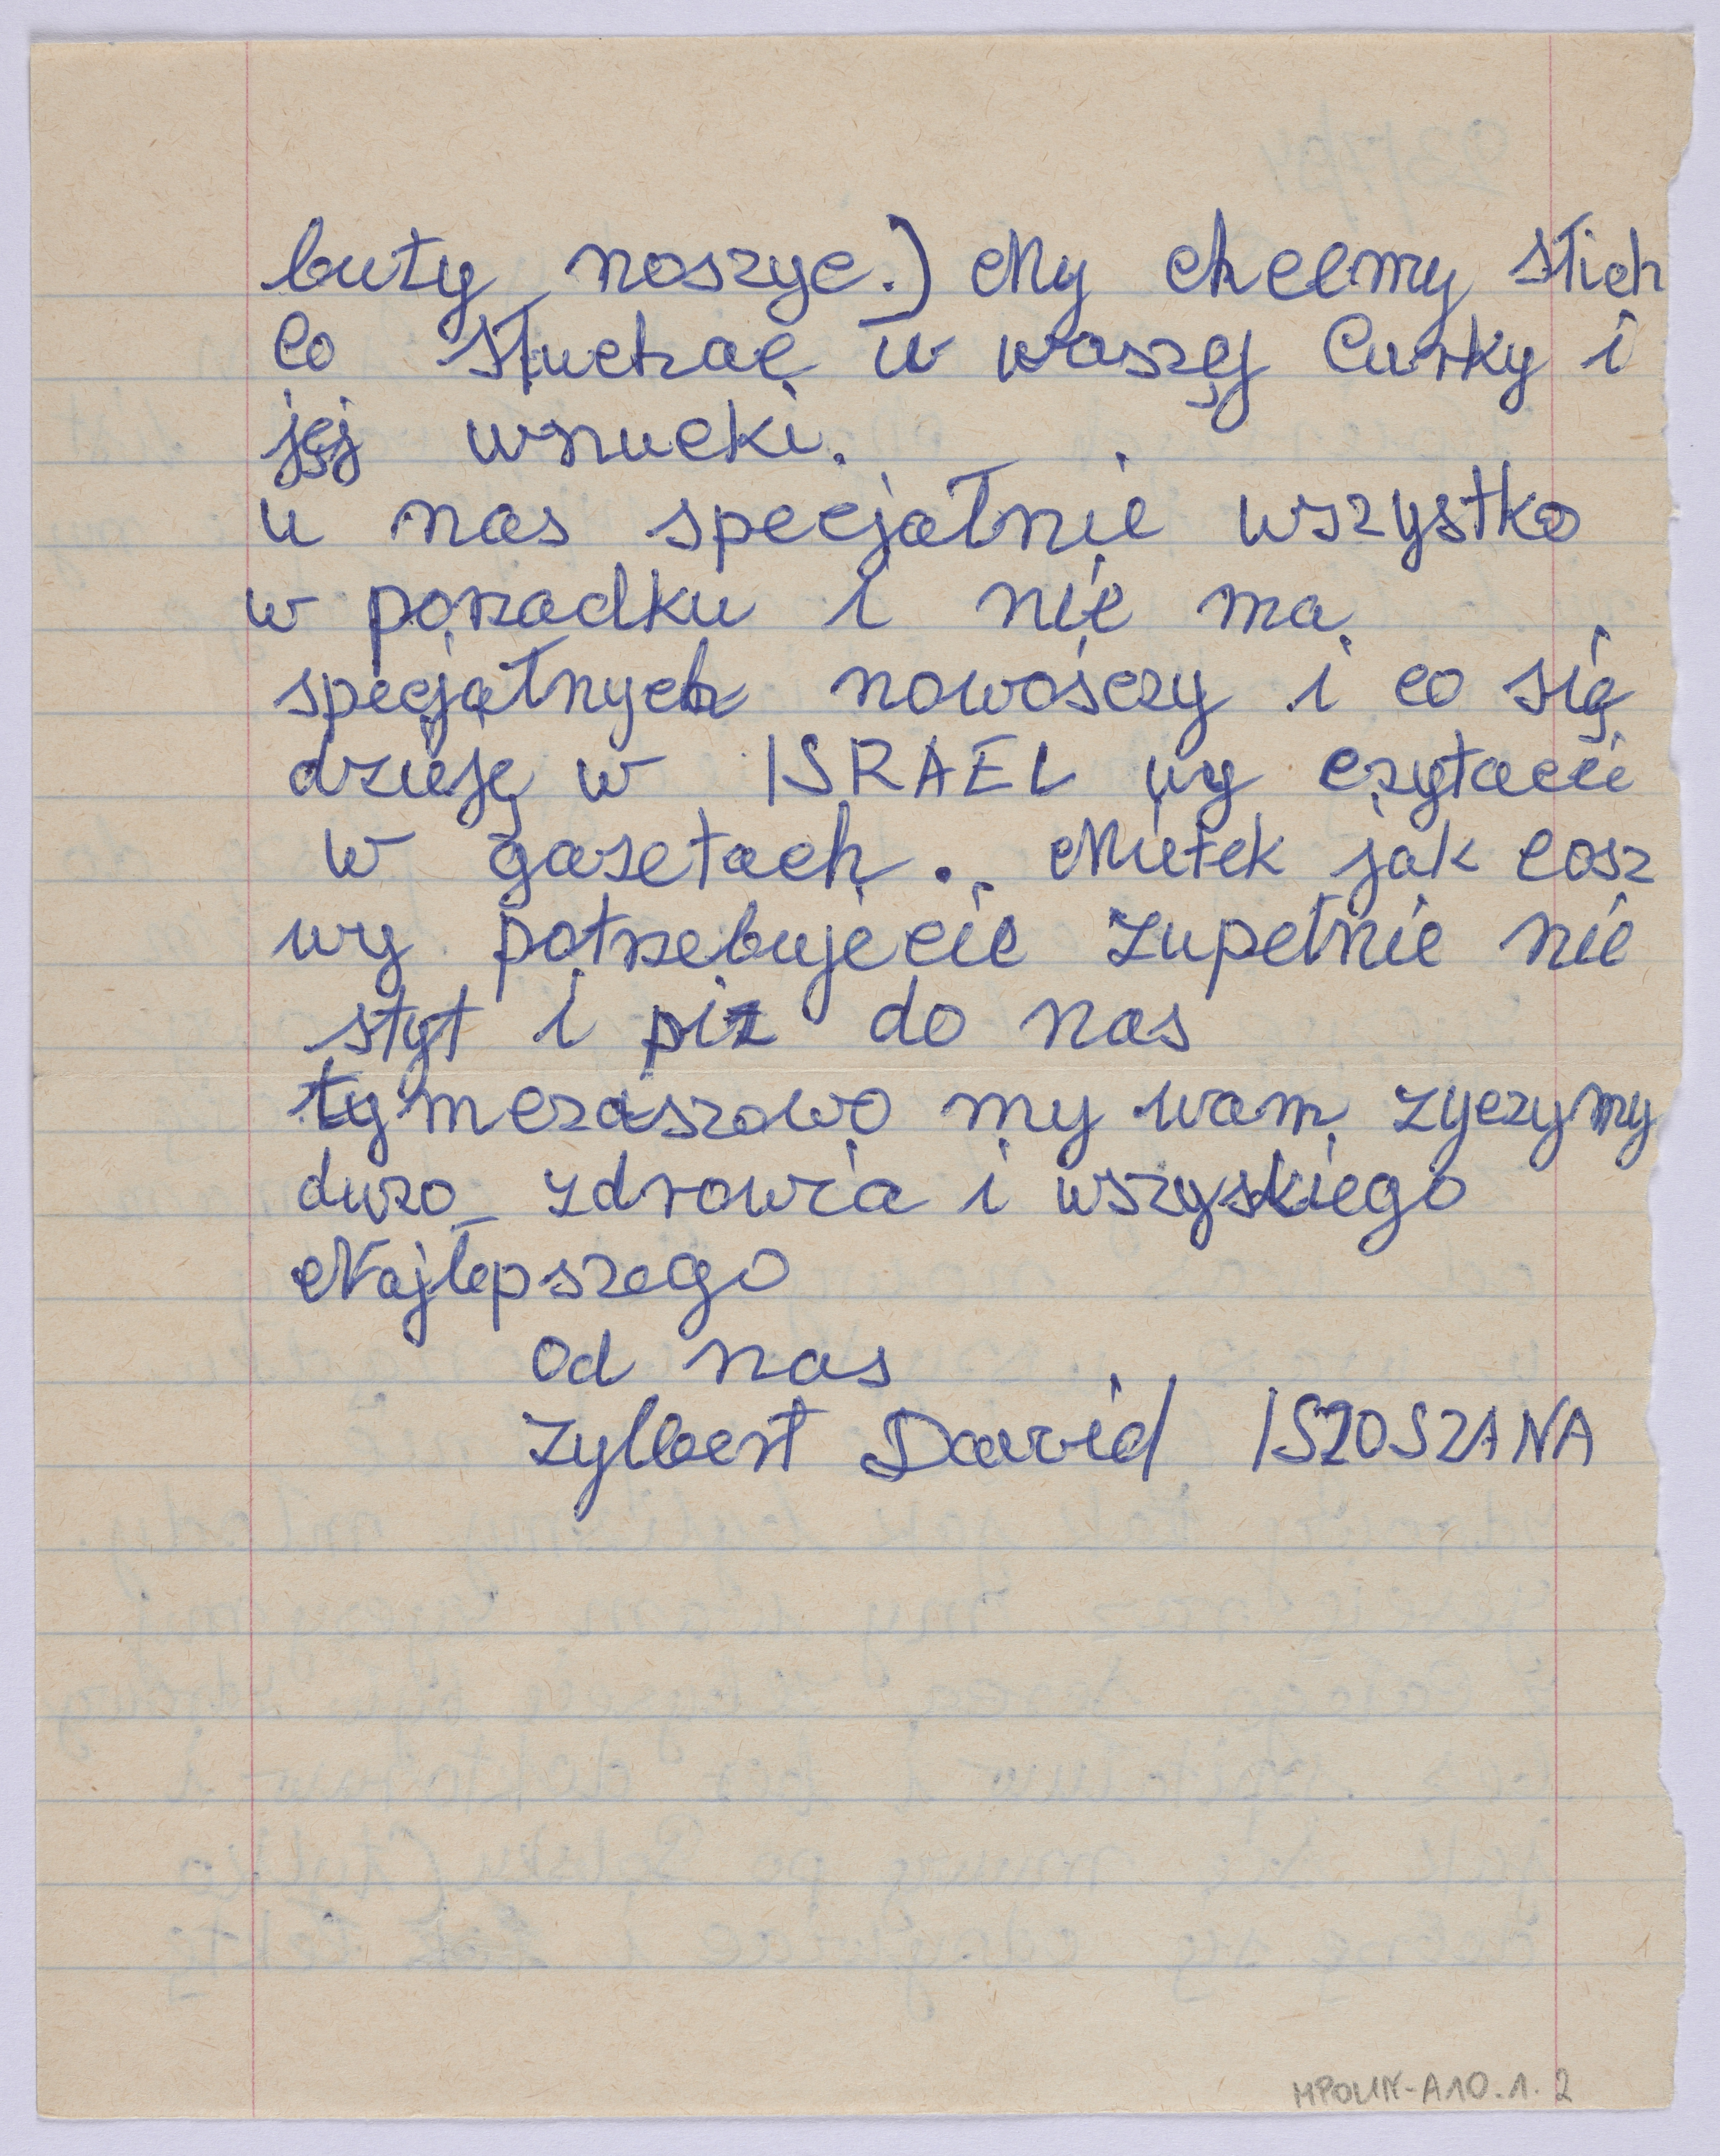 buty noszyc.) My chcemy stich
co słuchać u waszej Curky i
jej wnucki.
u nas specjałnie wszystko
w porzadku i nie ma
specjałnych nowośczy i co się
dzieję w ISRAEL wy czytacie
w gazetach. Mietek jak cosz
wy potrzebujecie zupełnie nie
styt i piz do nas
tymczaszowo my wam zyczymy
duzo zdrowia i wszyskiego
Najlepszego
od nas
Zylbert David ISZOSZANA
MPOLIN-A10.1.2